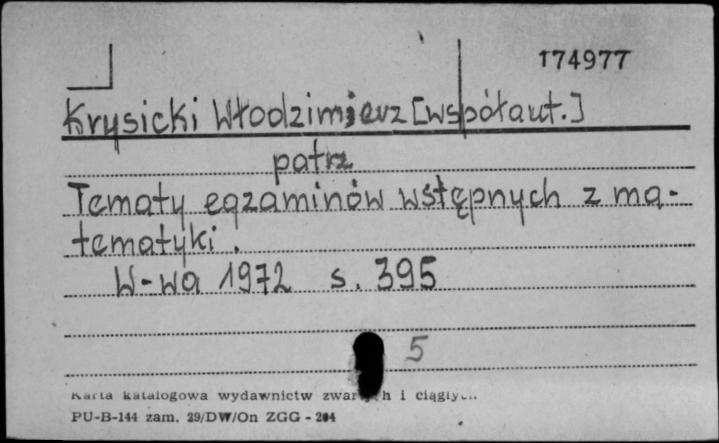 174977
Krysicki Włodzimierz [współaut.]
patrz
Tematy egzaminów wstępnych z ma-
tematyki.
W-wa 1972 s. 395
5
Karta katalogowa wydawnictw i
PU-B-144 zam. 29/DW/On ZGG - 204